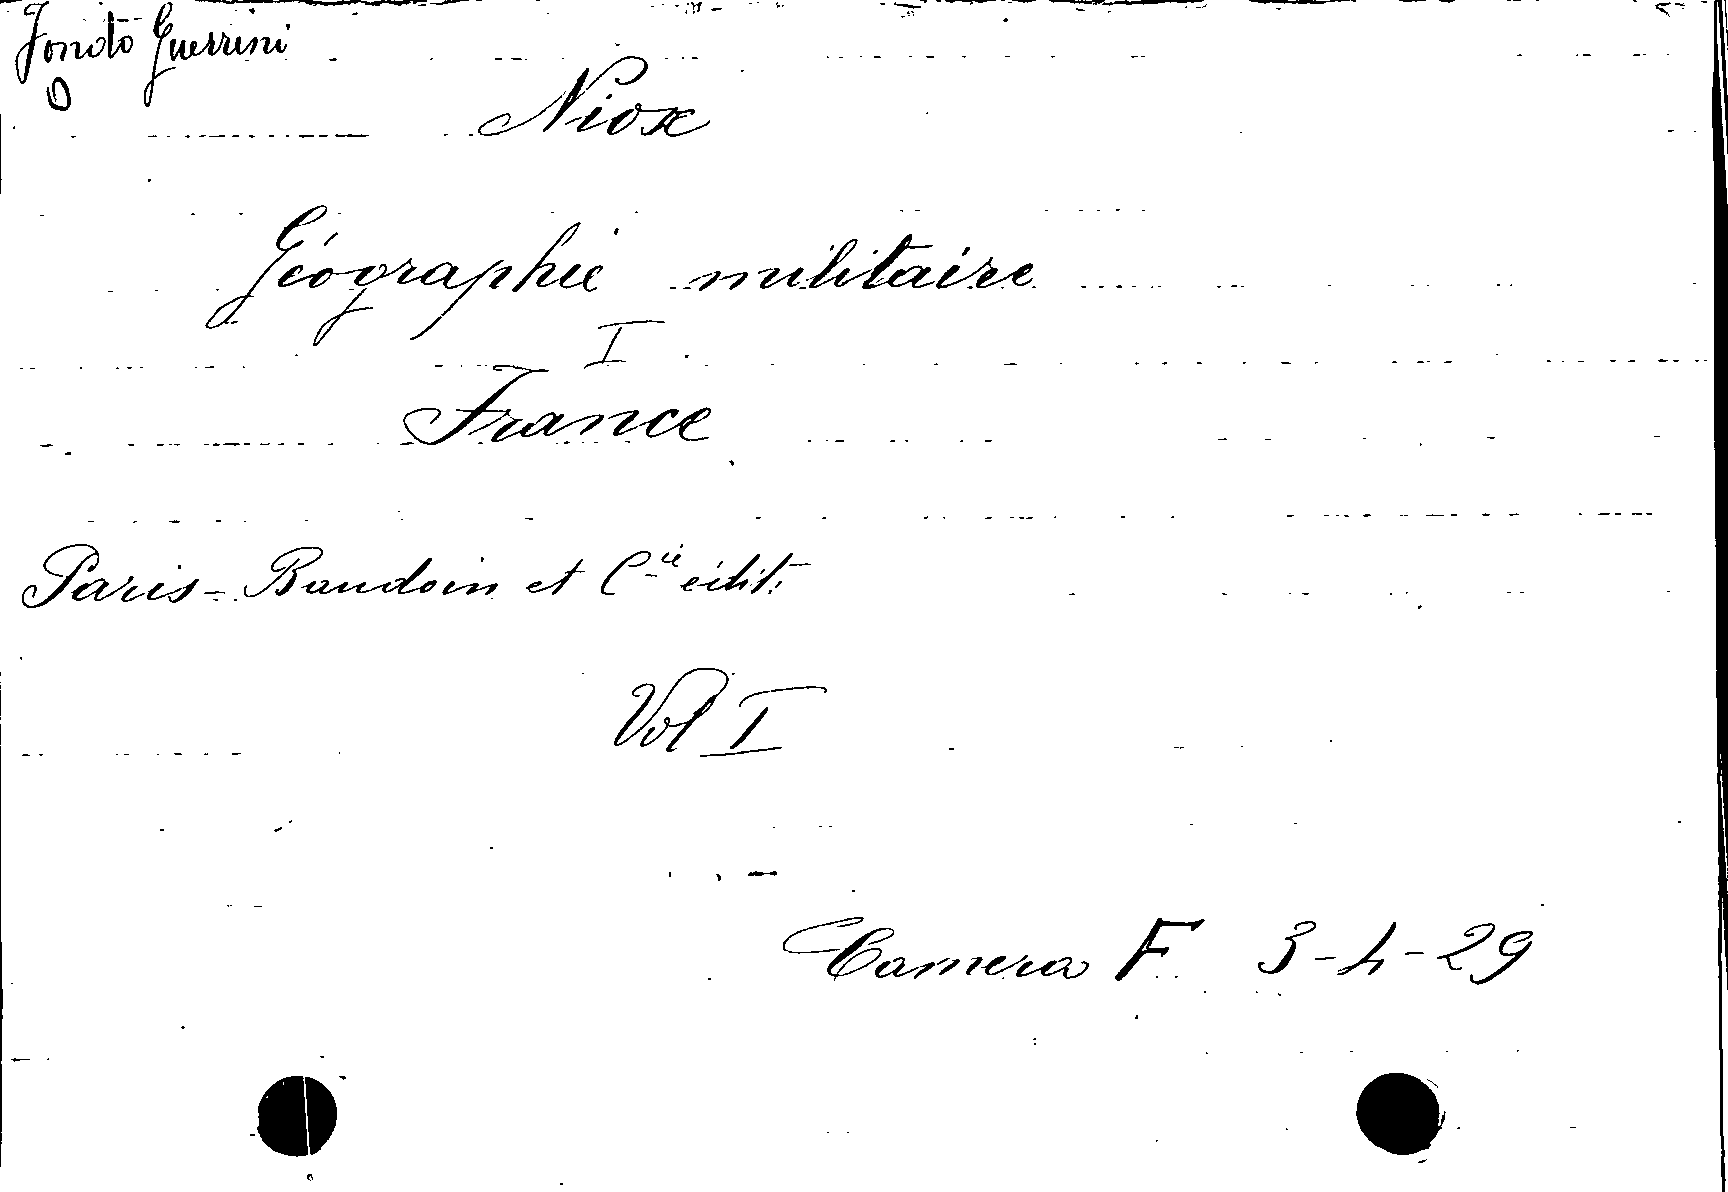 Fondo Guerrini
O
Niox
Géographie militaire
I
France
Paris - Baudoin et Cie édit.
Vol I
Camera F 3-4-29